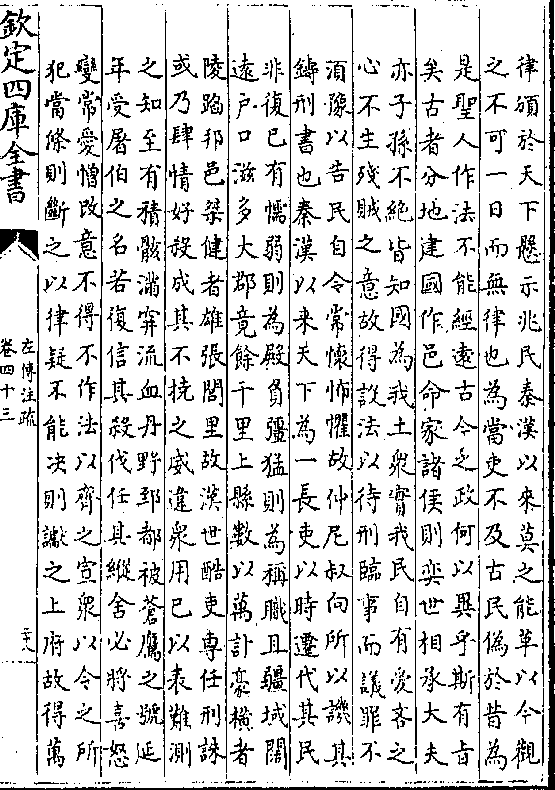 律頒於天下懸示兆民秦漢以來莫之能革以今觀
之不可一日而無律也為當吏不及古民偽於昔為
是聖人作法不能經遠古今之政何以異乎斯有旨
矣古者分地建國作邑命家諸侯則奕世相承大夫
亦子孫不絶皆知國為我土衆實我民自有愛吝之
心不生殘賊之意故得設法以待刑臨事而議罪不
須豫以告民自令常懷怖懼故仲尼叔向所以譏其
鑄刑書也秦漢以來天下為一長吏以時遷代其民
非復已有懦弱則為殿負彊猛則為稱職且疆域闊
遠户口滋多大郡竟餘千里上縣數以萬計豪横者
陵蹈邦邑桀健者雄張閭里故漢世酷吏專任刑誅
或乃肆情好殺成其不撓之威違衆用已以表難測
之知至有積骸滿穽流血丹野郅都被蒼鷹之號延
年受屠伯之名若復信其殺伐任其縱舍必將喜怒
變常愛憎改意不得不作法以齊之宣衆以令之所
犯當條則斷之以律疑不能决則讞之上府故得萬
欽定四庫全書
左傳注疏
卷四十三
二十八